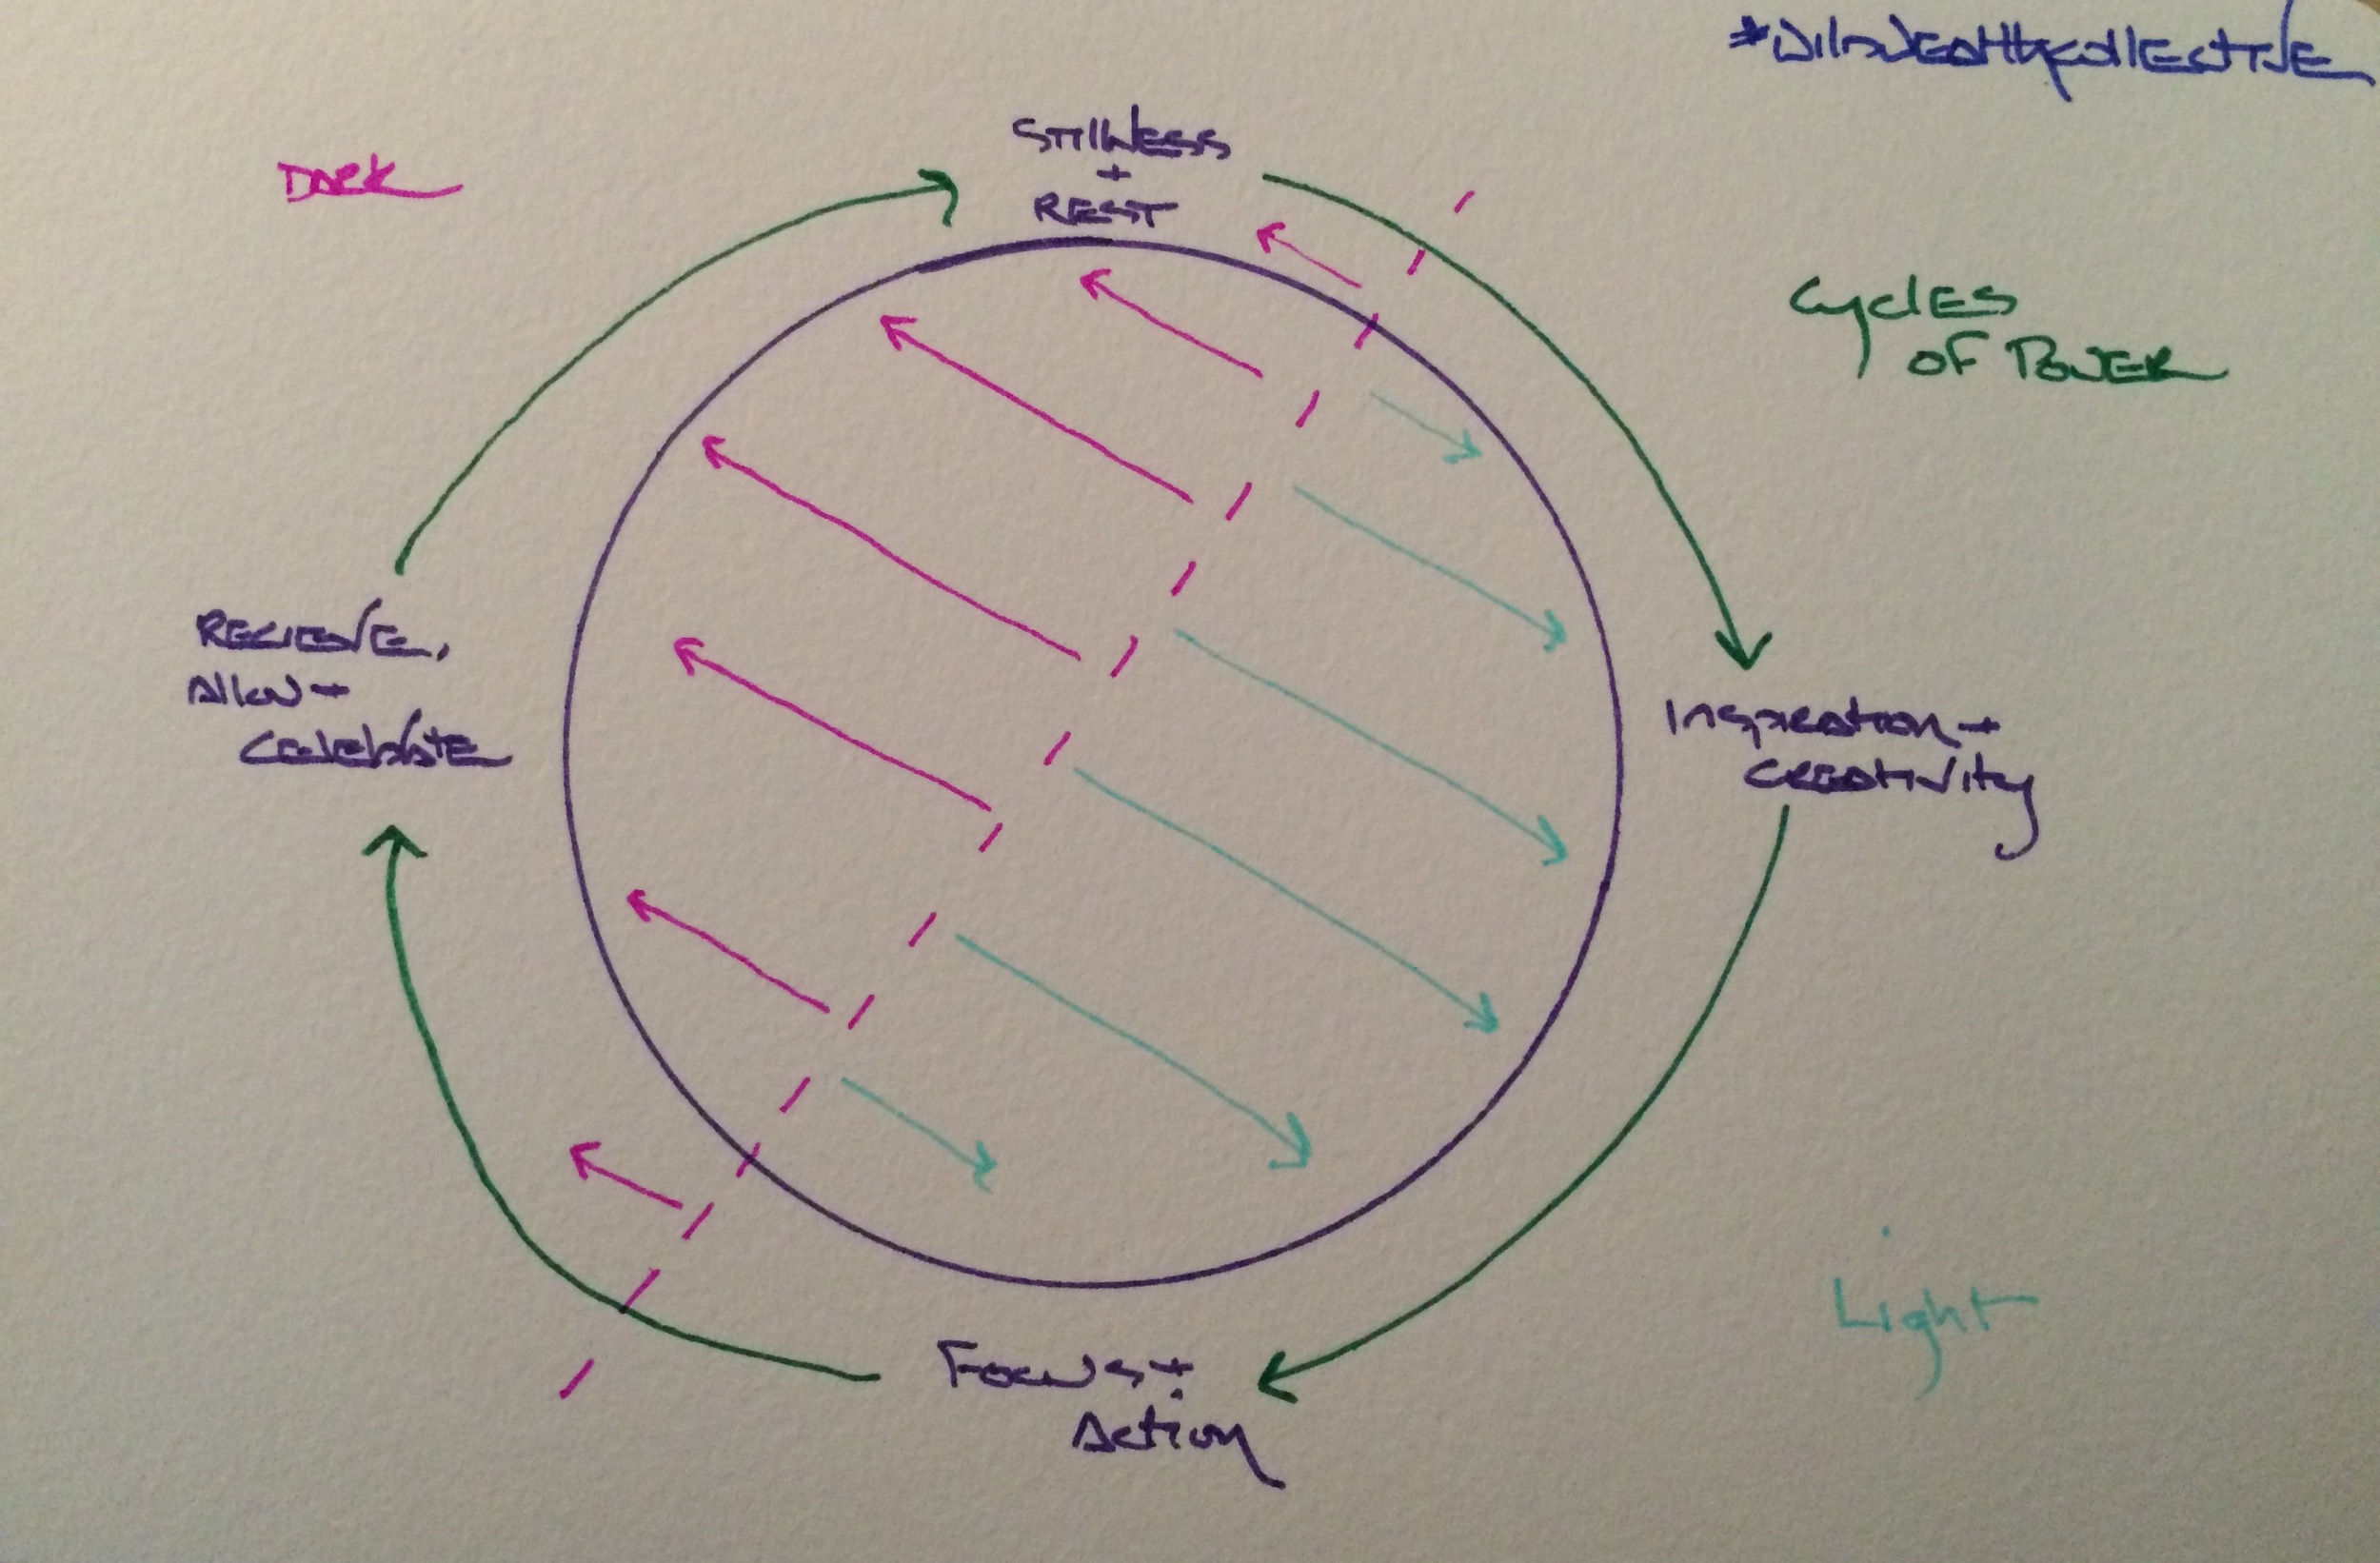 #WildWealthyCollective
Dark
STillNESS
+
REST
CyclES
OF POWER
RECIEVE,
Allow +
CelebRatE
Inspiration +
CREAtivity
Light
Focus +
Action